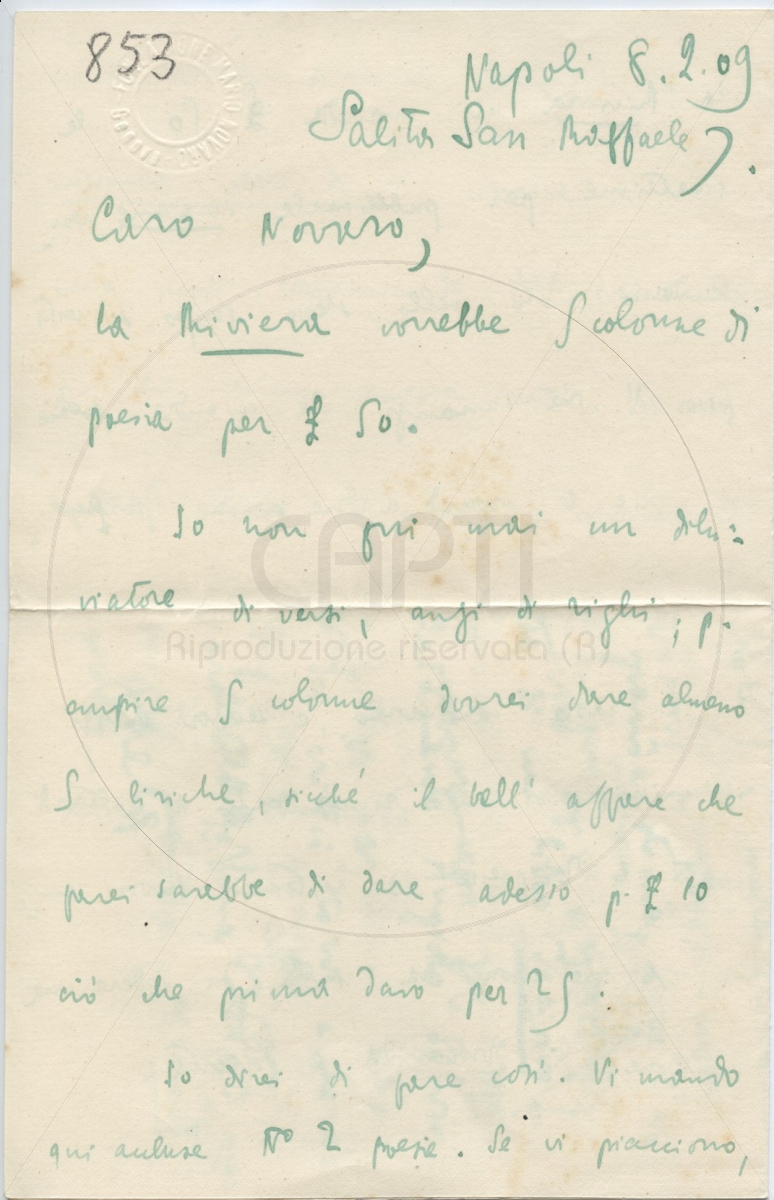 853
Napoli 8.2.09
Salita San Raffaele 7.
Caro Novaro,
la Riviera vorrebbe 5 colonne di
poesia per £ 50.
Io non fui mai un dilu=
viatore di versi, anzi di righi; p.
empire 5 colonne dovrei dare almeno
5 liriche, sicché il bell' affare che
farei sarebbe di dare adesso p. £ 10
ciò che prima davo per 25.
Io direi di fare così. Vi mando
qui accluse N° 2 poesie. Se vi piacciono,
CAPTI
Riproduzione riservata (R)